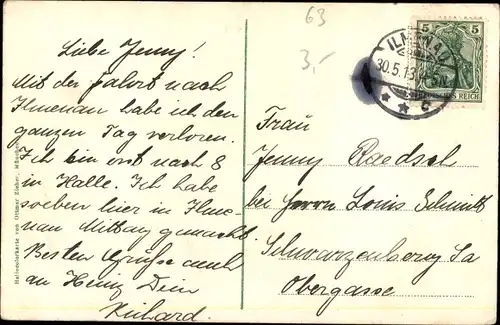 63
3,-
Liebe Jenny!
Mit der Fahrt nach
Ilmenau habe ich den
ganzen Tag verloren.
Ich bin erst nach 8
in Halle. Ich habe
soeben hier in Ilme-
nau Mittag gemacht.
Besten Grüße auch
an Heinz Dein
Richard.
ILMENAU
30.5.13
* * c
5 5
DEUTSCHES REICH
Frau
Jenny Raedsch
bei Herrn Louis Schmidt
Schwarzenberg Sa
Obergasse
Heliocolorkarte von Ottmar Zieher, München